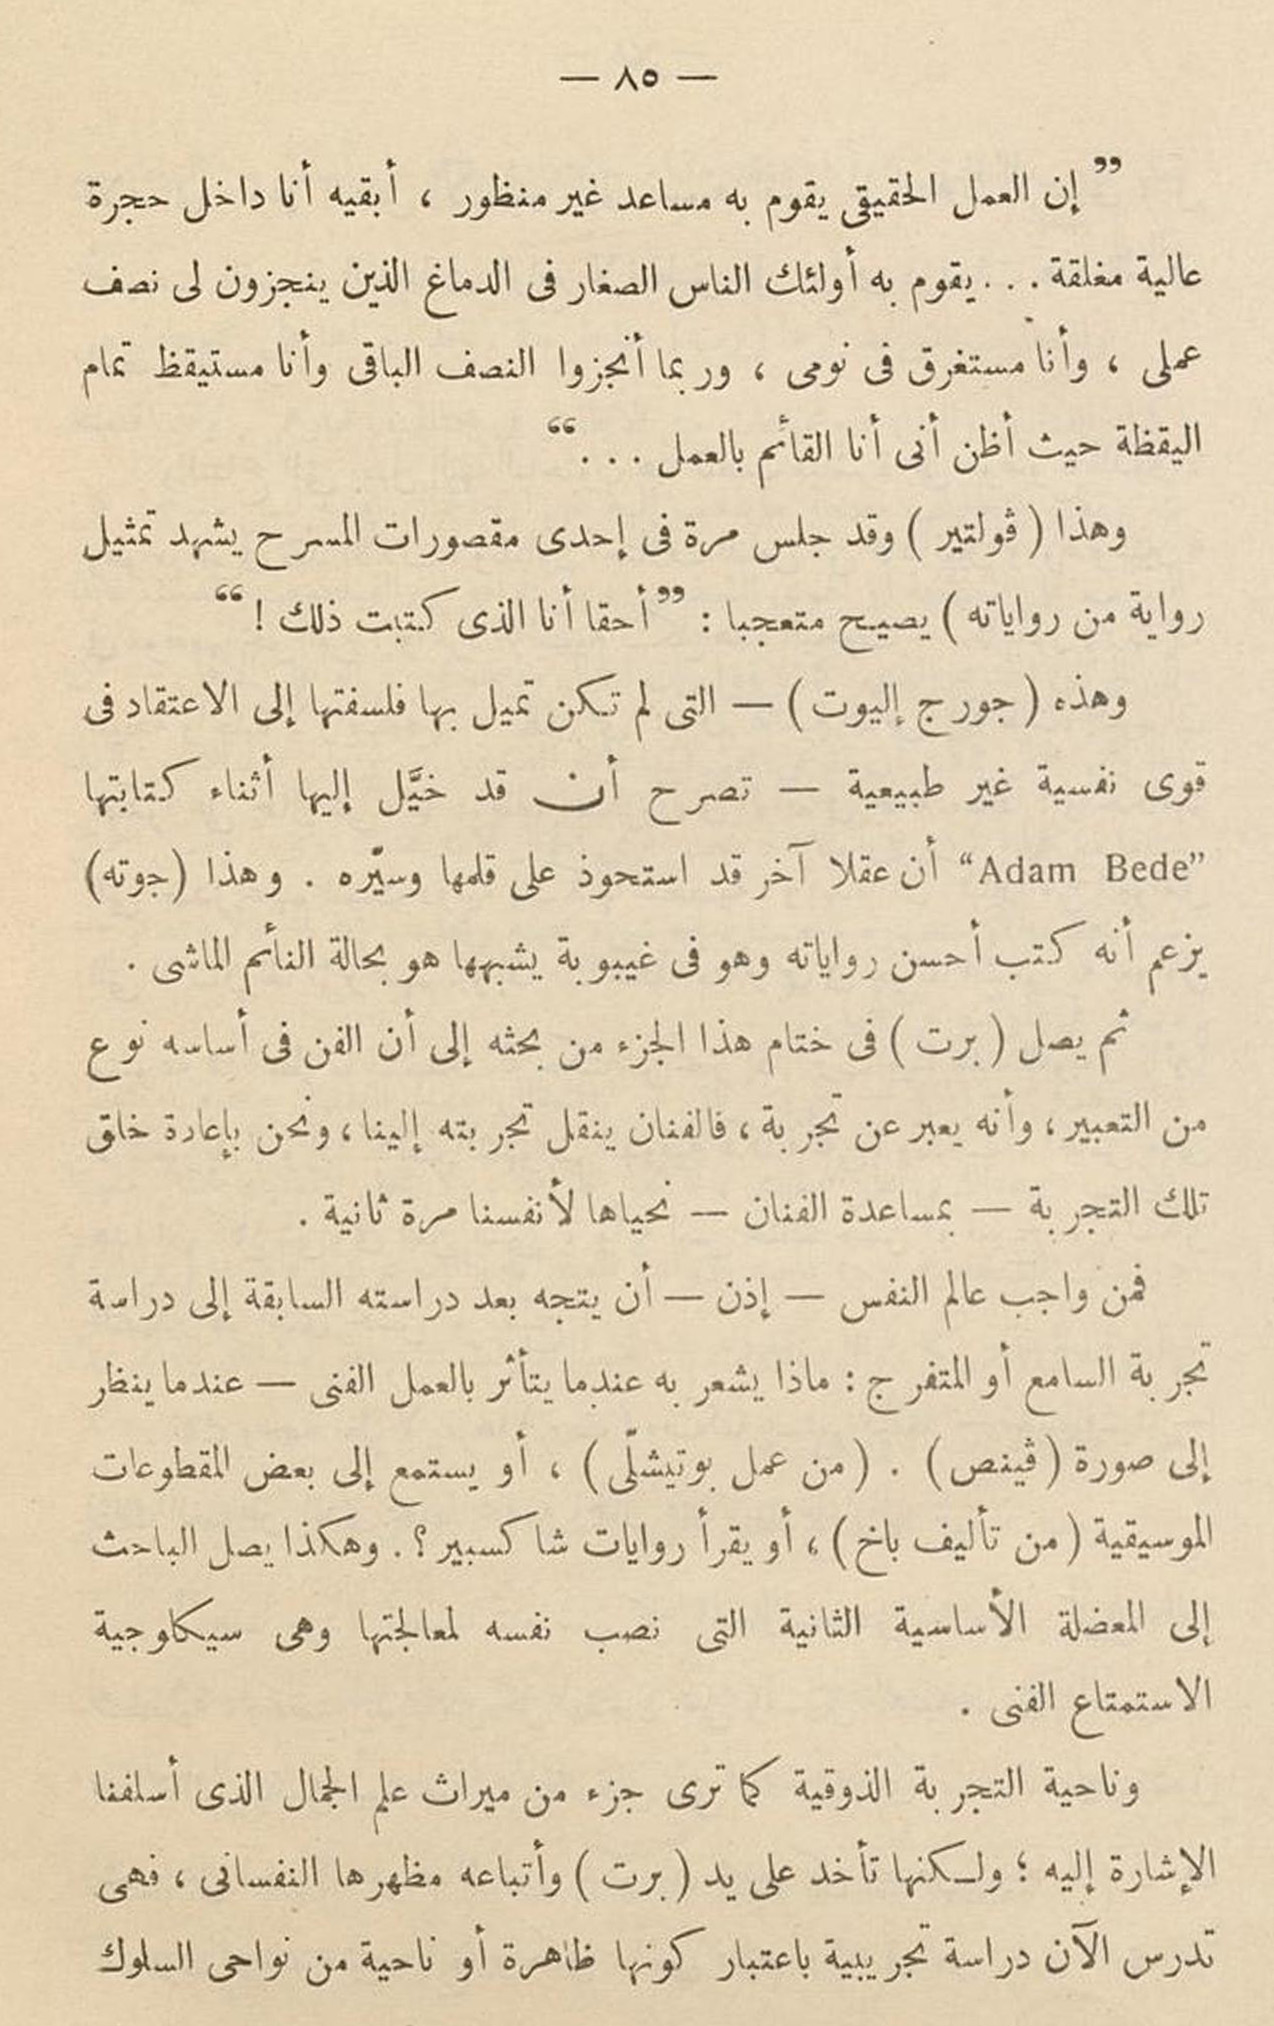 — ٨٥ —
”إن العمل الحقيقى يقوم به مساعد غير منظور ، أبقيه أنا داخل حجرة
عالية مغلقة . . . يقوم به أولئك الناس الصغار فى الدماغ الذين ينجزون لى نصف
عملى ، وأنا مستغرق فى نومى ، وربما أنجزوا النصف الباقى وأنا مستيقظ تمام
اليقظة حيث أظن أنى أنا القائم بالعمل . . . “
وهذا ( ڤولتير ) وقد جلس مرة فى إحدى مقصورات المسرح يشهد تمثيل
رواية من رواياته ) يصيح متعجبا : ”أحقا أنا الذى كتبت ذلك ! “
وهذه ( جورج إليوت ) — التى لم تكن تميل بها فلسفتها إلى الاعتقاد فى
قوى نفسية غير طبيعية — تصرح أن قد خيَّل إليها أثناء كتابتها
”Adam Bede“ أن عقلا آخر قد استحوذ على قلمها وسيّره . وهذا (جوته)
يزعم أنه كتب أحسن رواياته وهو فى غيبوبة يشبهها هو بحالة النائم الماشى .
ثم يصل ( برت ) فى ختام هذا الجزء من بحثه إلى أن الفن فى أساسه نوع
من التعبير ، وأنه يعبر عن تجربة ، فالفنان ينقل تجربته إلينا ، ونحن بإعادة خلق
تلك التجربة — بمساعدة الفنان — نحياها لأنفسنا مرة ثانية .
فمن واجب عالم النفس — إذن — أن يتجه بعد دراسته السابقة إلى دراسة
تجربة السامع أو المتفرج : ماذا يشعر به عندما يتأثر بالعمل الفنى — عندما ينظر
إلى صورة ( ڤينص ) . ( من عمل بوتيشلّى ) ، أو يستمع إلى بعض المقطوعات
الموسيقية ( من تأليف باخ ) ، أو يقرأ روايات شاكسبير ؟ . وهكذا يصل الباحث
إلى المعضلة الأساسية الثانية التى نصب نفسه لمعالجتها وهى سيكلوجية
الاستمتاع الفنى .
وناحية التجربة الذوقية كما ترى جزء من ميراث علم الجمال الذى أسلفنا
الإشارة إليه ؛ ولكنها تأخد على يد ( برت ) وأتباعه مظهرها النفسانى ، فهى
تدرس الآن دراسة تجريبية باعتبار كونها ظاهرة أو ناحية من نواحى السلوك